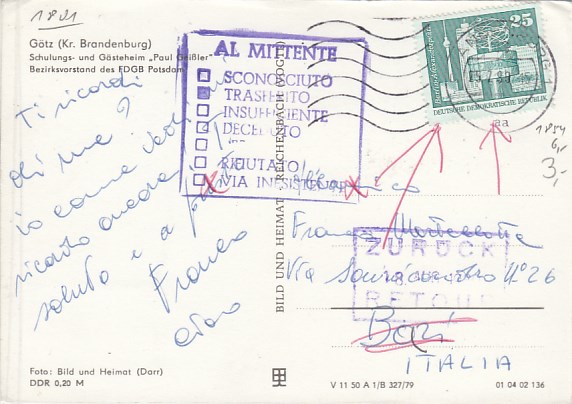 1821
Götz (Kr. Brandenburg)
Schulungs- und Gästeheim „Paul Geißler"
Bezirksvorstand des FDGB Potsdam
Ti ricordi
di me?
io come vedi
ricordo ancora
saluto e a
Franco
ciao
AL MITTENTE
SCONOSCIUTO
TRASFERITO
INSUFFICIENTE
DECEDUTO
RIFIUTATO
VIA INESISTENTE
BILD UND HEIMAT REICHENBACH (VOGTL)
25
DEUTSCHE DEMOKRATISCHE REPUBLIK
aa
1854
6,-
3,-
Franco
Via N° 26
Bari
ITALIA
ZURÜCK
RETOUR
Foto: Bild und Heimat (Darr)
DDR 0,20 M
V 11 50 A 1/B 327/79
01 04 02 136